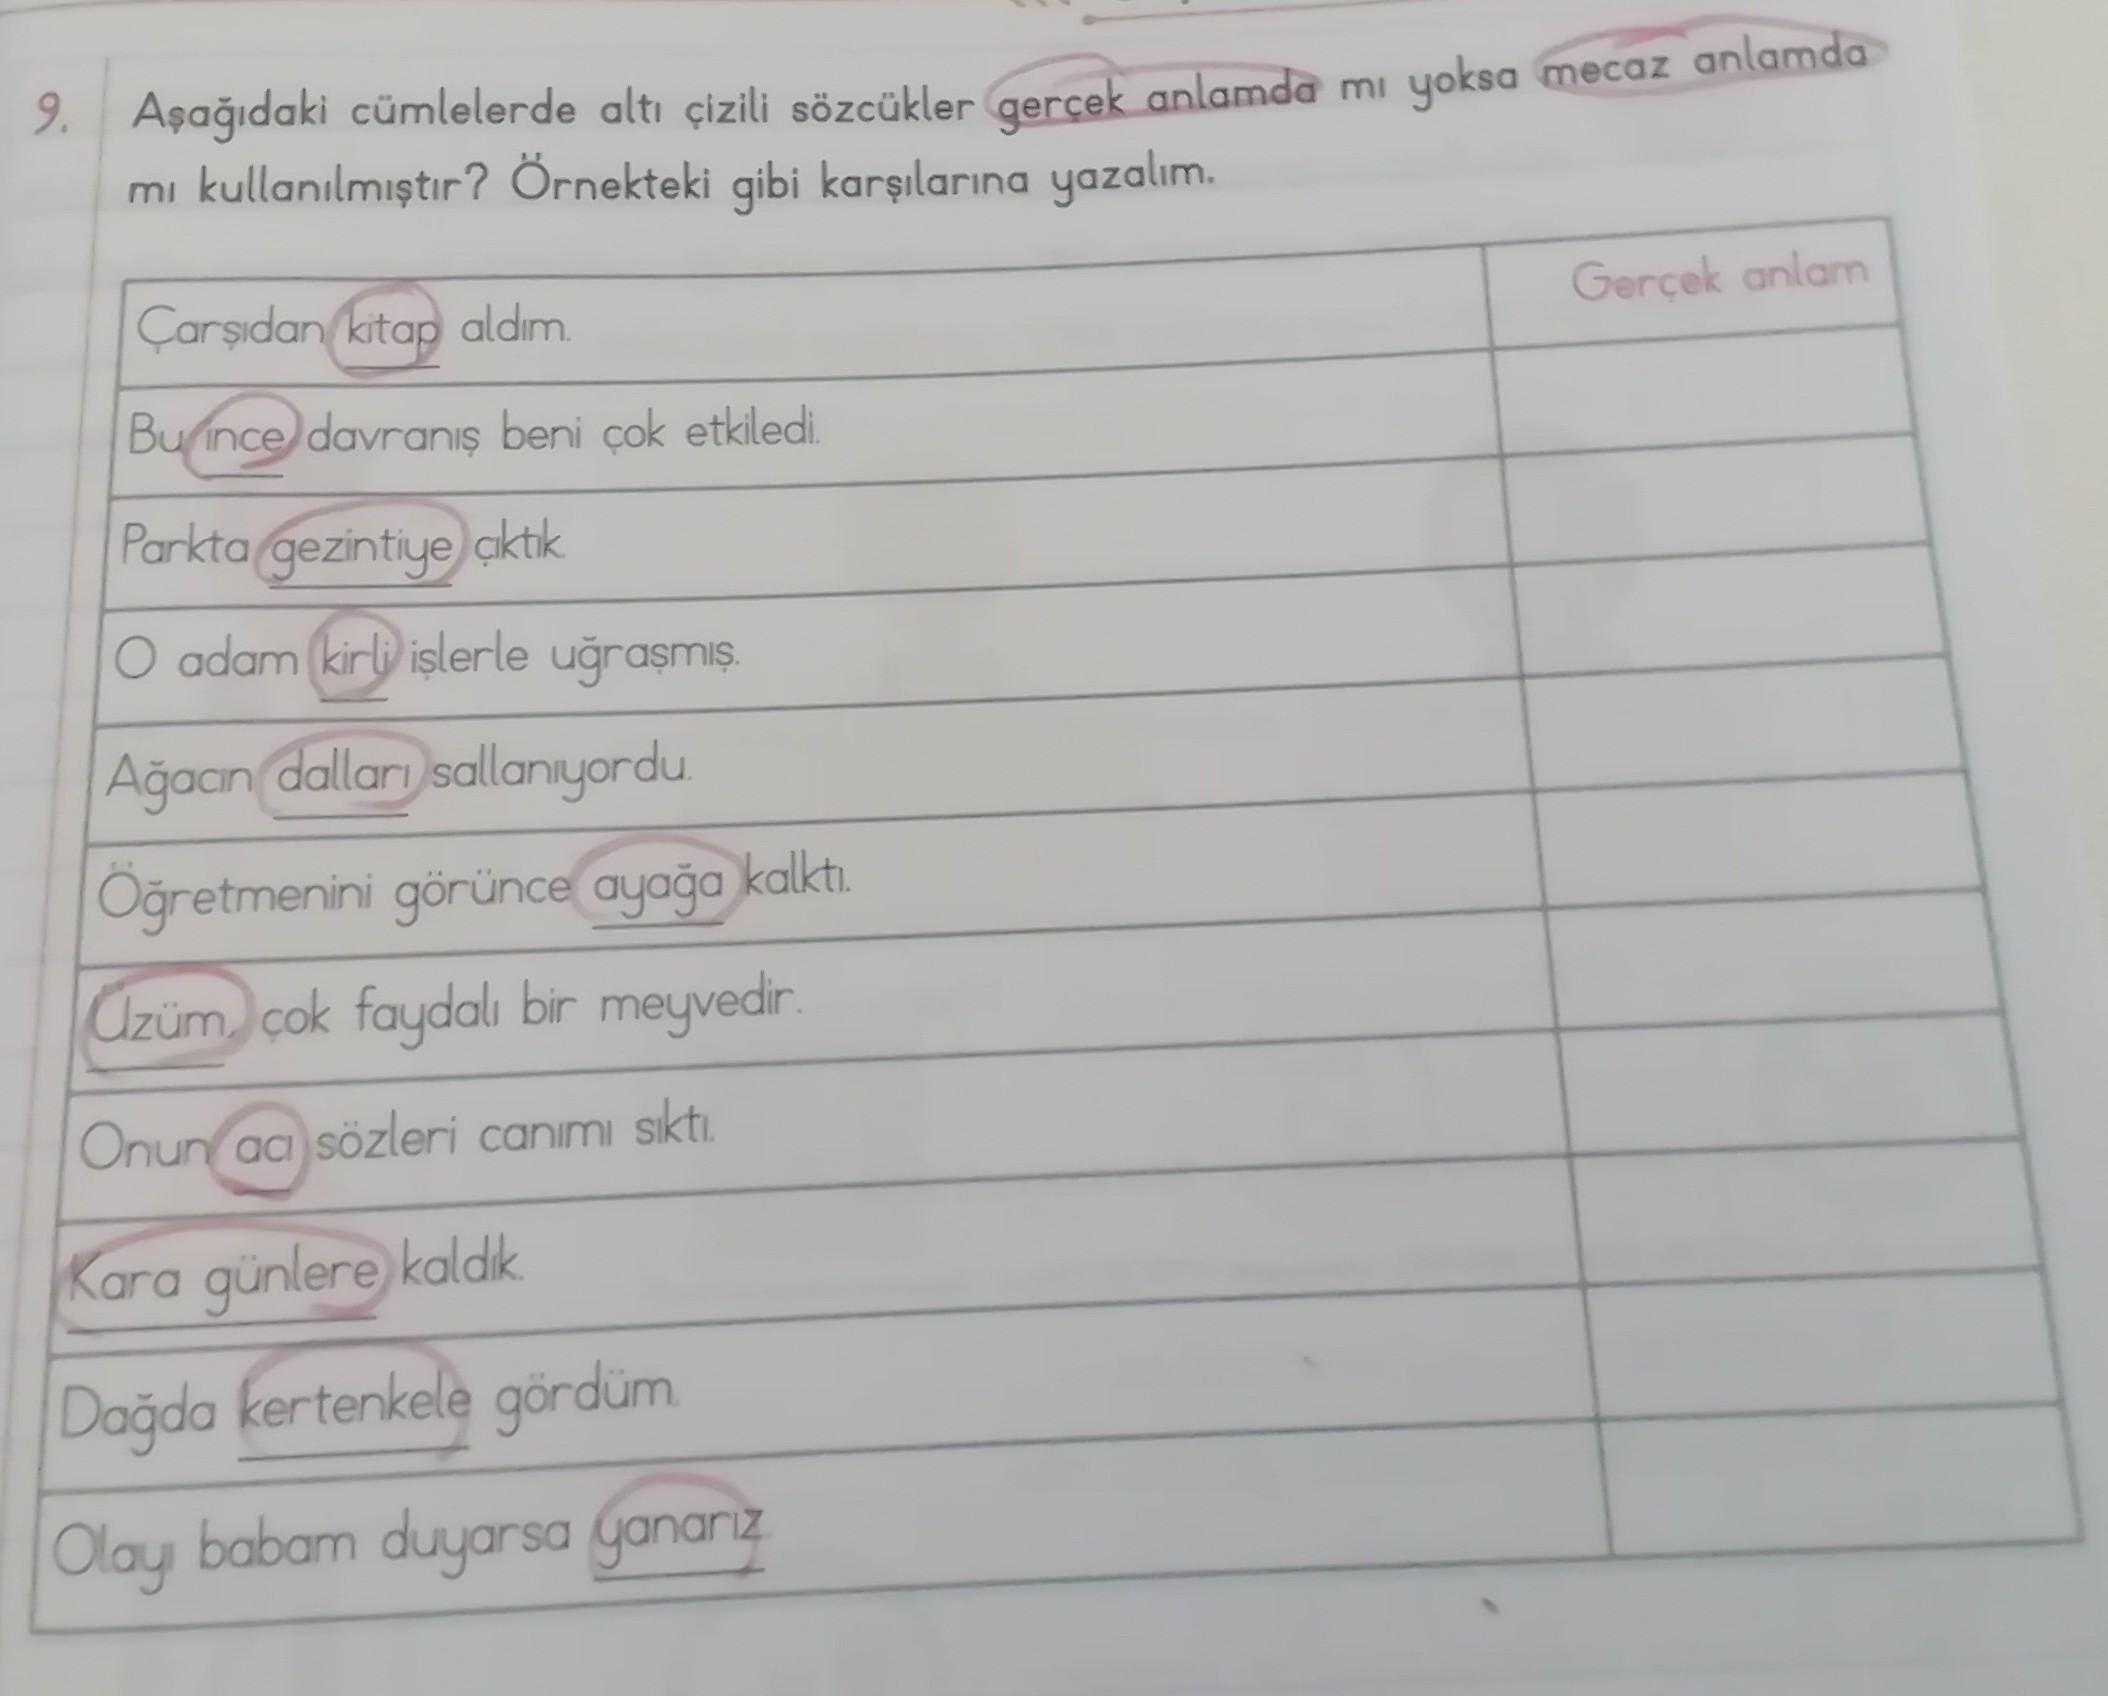 9. Aşağıdaki cümlelerde altı çizili sözcükler gerçek anlamda mı yoksa mecaz anlamda
mı kullanılmıştır? Örnekteki gibi karşılarına yazalım.
Çarşıdan kitap aldım. Gerçek anlam
Bu ince davranış beni çok etkiledi.
Parkta gezintiye çıktık
O adam kirli işlerle uğraşmış.
Ağacın dalları sallanıyordu.
Öğretmenini görünce ayağa kalktı.
Üzüm, çok faydalı bir meyvedir.
Onun acı sözleri canımı sıktı.
Kara günlere kaldık.
Dağda kertenkele gördüm.
Olayı babam duyarsa yanarız